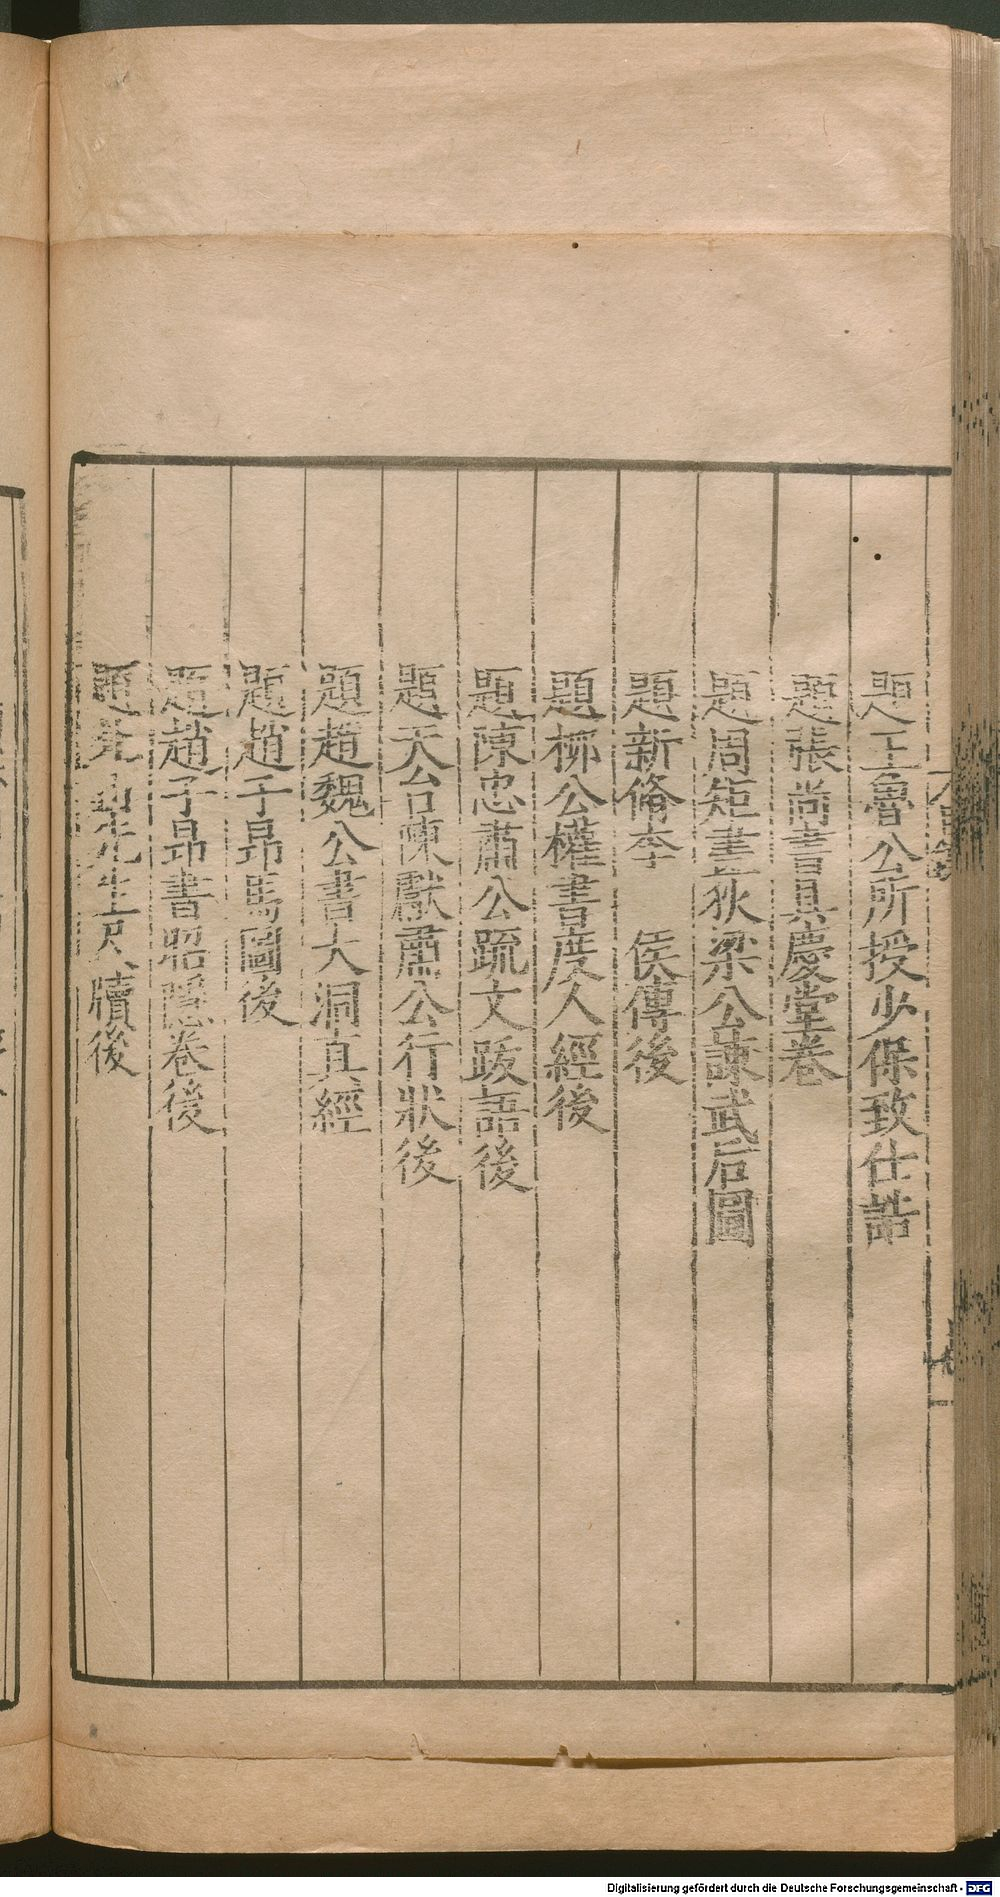 題王魯公所授少保致仕誥
題張尚書具慶堂卷
題周矩畫狄梁公諫武后圖
題新脩李　侯傳後
題栁公權書度人經後
題陳忠肅公䟽文䟦語後
題天台陳獻肅公行狀後
題趙魏公書大洞真經
題趙子昂馬圖後
題趙子昂書昭隱卷後
題先生尺牘後
Digitalisierung gefördert durch die Deutsche Forschungsgemeinschaft - DFG